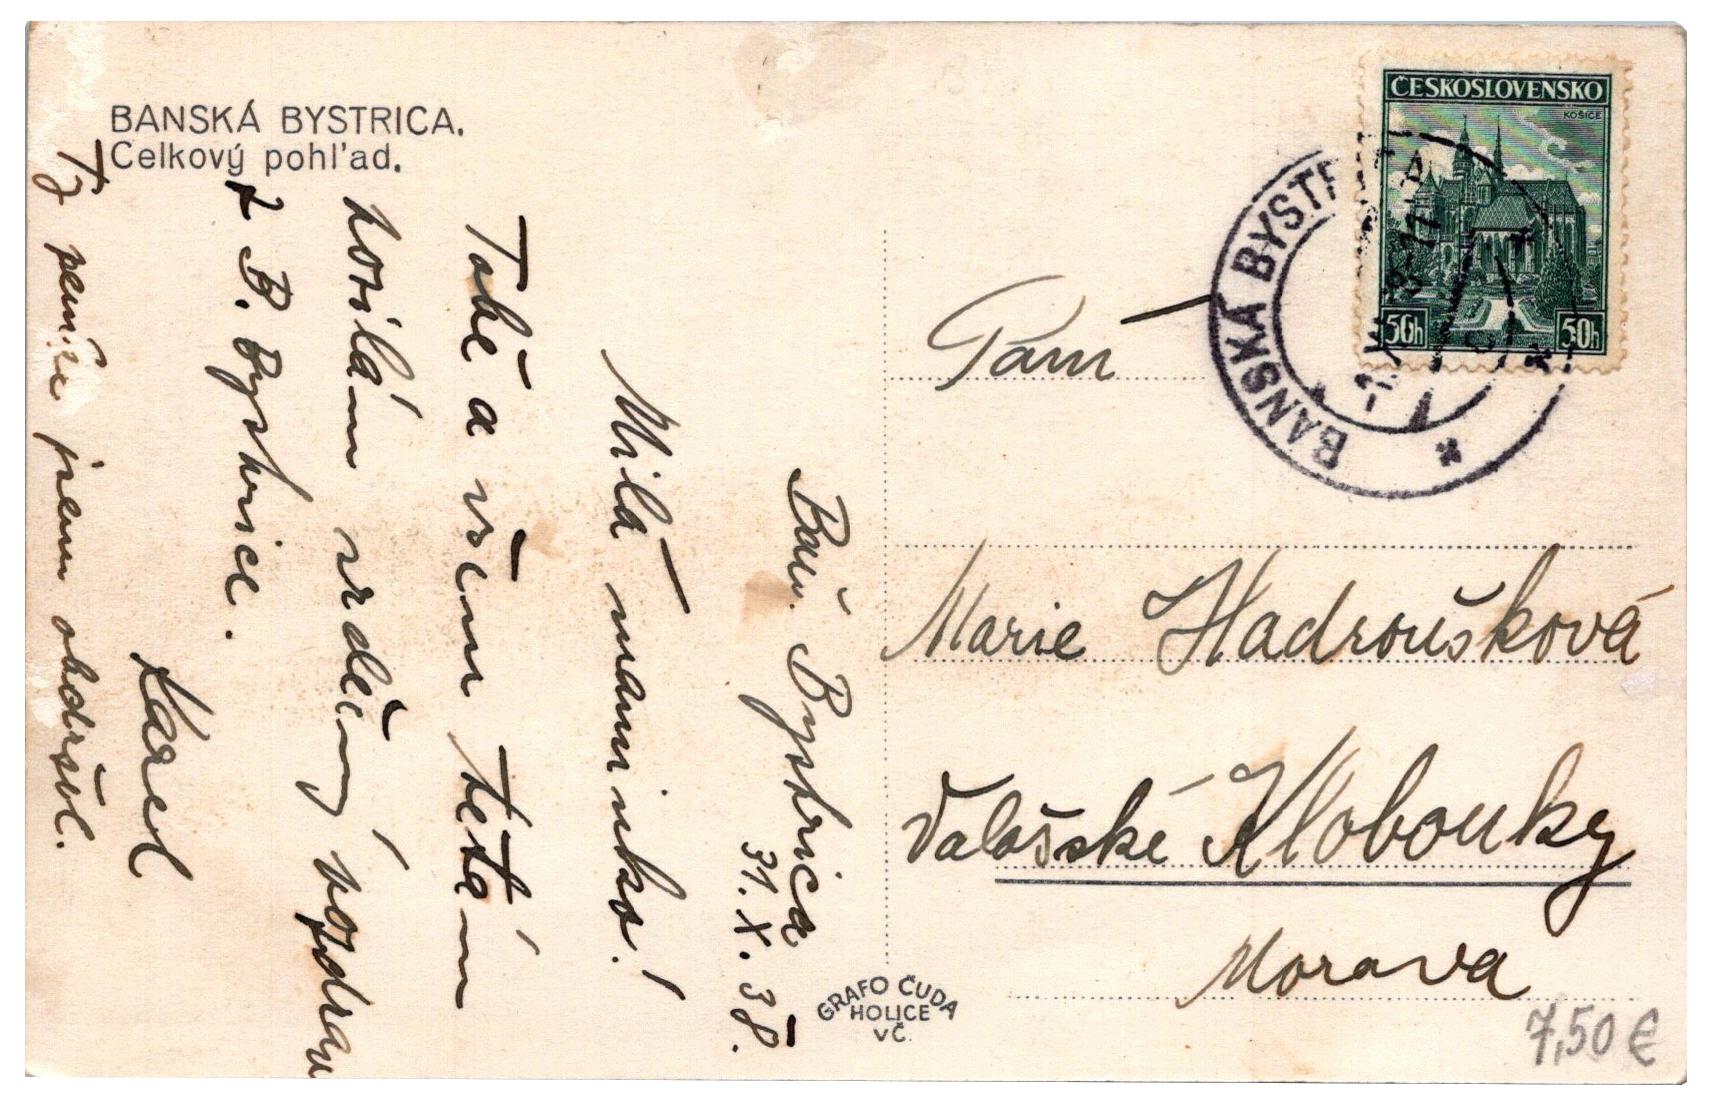 BANSKÁ BYSTRICA.
Celkový pohl'ad.
Baň. Bystrica
31.X.38.
Milá maminko!
Tobě a všem tetám
posílám srdečný pozdrav
z B. Bystrice.
Karel
Ty peníze jsem obdržel.
GRAFO ČUDA
HOLICE
VČ.
ČESKOSLOVENSKO
KOŠICE
50h 50h
BANSKÁ BYSTR
Paní
Marie Hadroušková
Valašské Klobouky
Morava
7,50 €